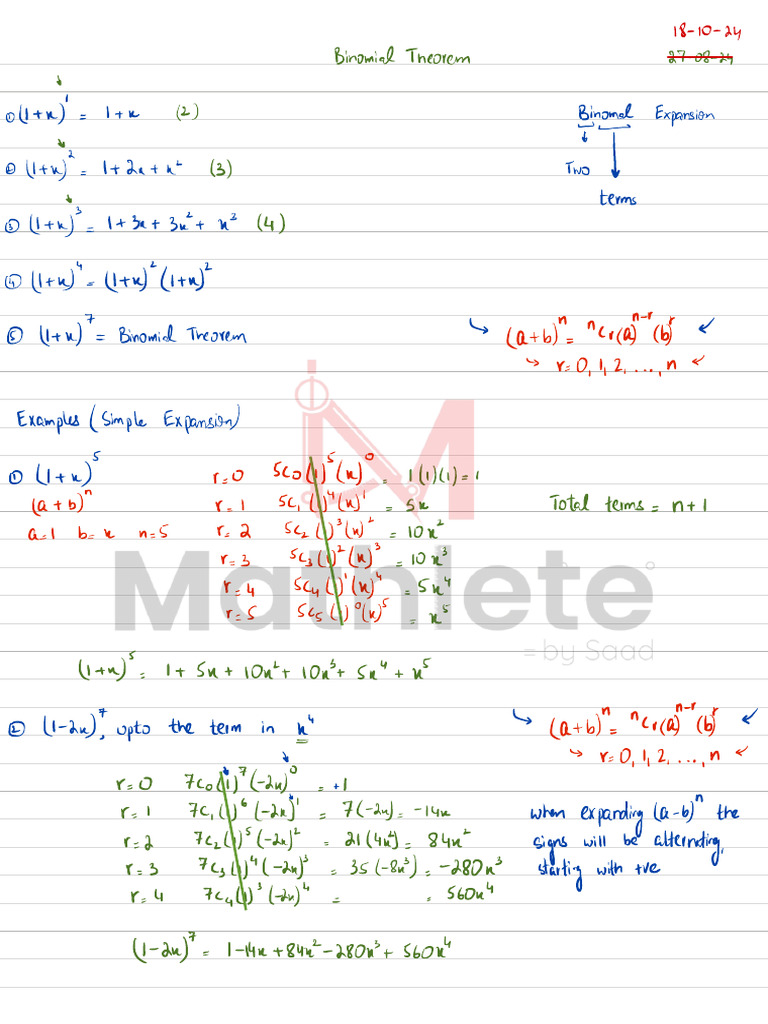 18-10-24
Binomial Theorem
27-08-24
① (1+x)¹ = 1+x (2)
Binomal Expansion
② (1+x)² = 1+2x+x² (3)
Two
terms
③ (1+x)³ = 1+3x+3x²+x³ (4)
④ (1+x)⁴ = (1+x)²(1+x)²
⑤ (1+x)⁷ = Binomial Theorem
(a+b)ⁿ = ⁿCr(a)ⁿ⁻ʳ(b)ʳ
r=0, 1, 2, ..., n
Examples (Simple Expansion)
① (1+x)⁵
(a+b)ⁿ
a=1 b=x n=5
r=0 5C0(1)⁵(x)⁰ = 1(1)(1)=1
r=1 5C₁(1)⁴(x)¹ = 5x
r=2 5C₂(1)³(x)² = 10x²
r=3 5C₃(1)²(x)³ = 10x³
r=4 5C₄(1)¹(x)⁴ = 5x⁴
r=5 5C₅(1)⁰(x)⁵ = x⁵
Total terms = n+1
Mathlete
=by Saad
(1+x)⁵ = 1+5x+10x²+10x³+5x⁴+x⁵
② (1-2x)⁷, upto the term in x⁴
(a+b)ⁿ = ⁿCr(a)ⁿ⁻ʳ(b)ʳ
r=0, 1, 2, ..., n
r=0 7C0(1)⁷(-2x)⁰ = +1
r=1 7C₁(1)⁶(-2x)¹ = 7(-2x) = -14x
r=2 7C₂(1)⁵(-2x)² = 21(4x²) = 84x²
r=3 7C₃(1)⁴(-2x)³ = 35(-8x³) = -280x³
r=4 7C₄(1)³(-2x)⁴ = = 560x⁴
when expanding (a-b)ⁿ the
signs will be alternating,
starting with +ve
(1-2x)⁷ = 1-14x+84x²-280x³+560x⁴